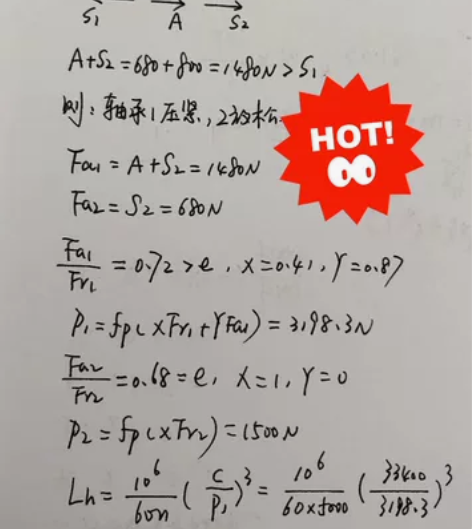 S₁ A S₂
A+S₂=680+800=1480N>S₁
则:轴承1压紧,2放松
HOT!
Fa₁=A+S₂=1480N
Fa₂=S₂=680N
Fa₁/Fr₁=0.72>e,X=0.41,Y=0.87
P₁=fp(XFr₁+YFa₁)=3198.3N
Fa₂/Fr₂=0.68=e,X=1,Y=0
P₂=fp(XFr₂)=1500N
Lh=10⁶/60n(C/P₁)³=10⁶/60×5000(33400/3198.3)³